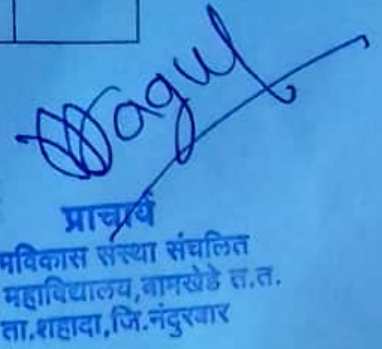 Wagul
प्राचार्य
मविकास संस्था संचलित
महाविद्यालय,बामखेडे त.त.
ता.शहादा,जि.नंदुरबार